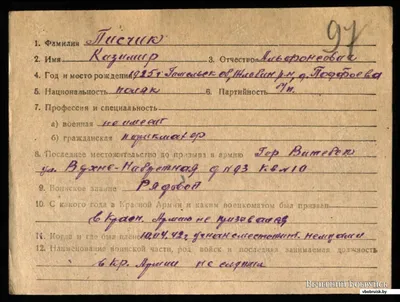 97
1. Фамилия Писчик
2. Имя Казимир 3. Отчество Альфонсович
4. Год и место рождения 1925 г Гомельск об, Жлобин р-н, д.
5. Национальность поляк 6. Партийность б/п.
7. Профессия и специальность
а) военная не имеет
б) гражданская парикмахер
8. Последнее местожительство до призыва в армию Гор Витебск
ул. д №3 кв №10
9. Воинское звание Рядовой
10. С какого года в Красной Армии и каким военкоматом был призван
в Красн. Армию не призывался
11. Когда и где 1942 г. немцами
12. Наименование воинской части, род войск и последняя занимаемая должность
в Кр. Армии не служил
vitebsk.by